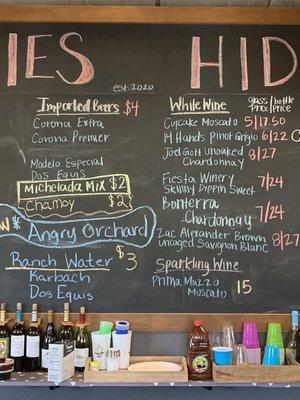 IES HID
est. 2020
Imported Beers $4
Corona Extra
Corona Premier
Modelo Especial
Dos Equis
Michelada Mix $2
Chamoy $2
Angry Orchard
Ranch Water $3
Karbach
Dos Equis
White Wine glass/bottle
Price/Price
Cupcake Moscato 5/17.50
M Hands Pinot Grigio 6/22
Joel Gott Unoaked 8/27
Chardonnay
Fiesta Winery 7/24
Skinny Dippin Sweet
Bonterra 7/24
Chardonnay
Zac Alexander Brown 8/27
Uncaged Sauvignon Blanc
Sparkling Wine
Prima Mazzo 15
Moscato